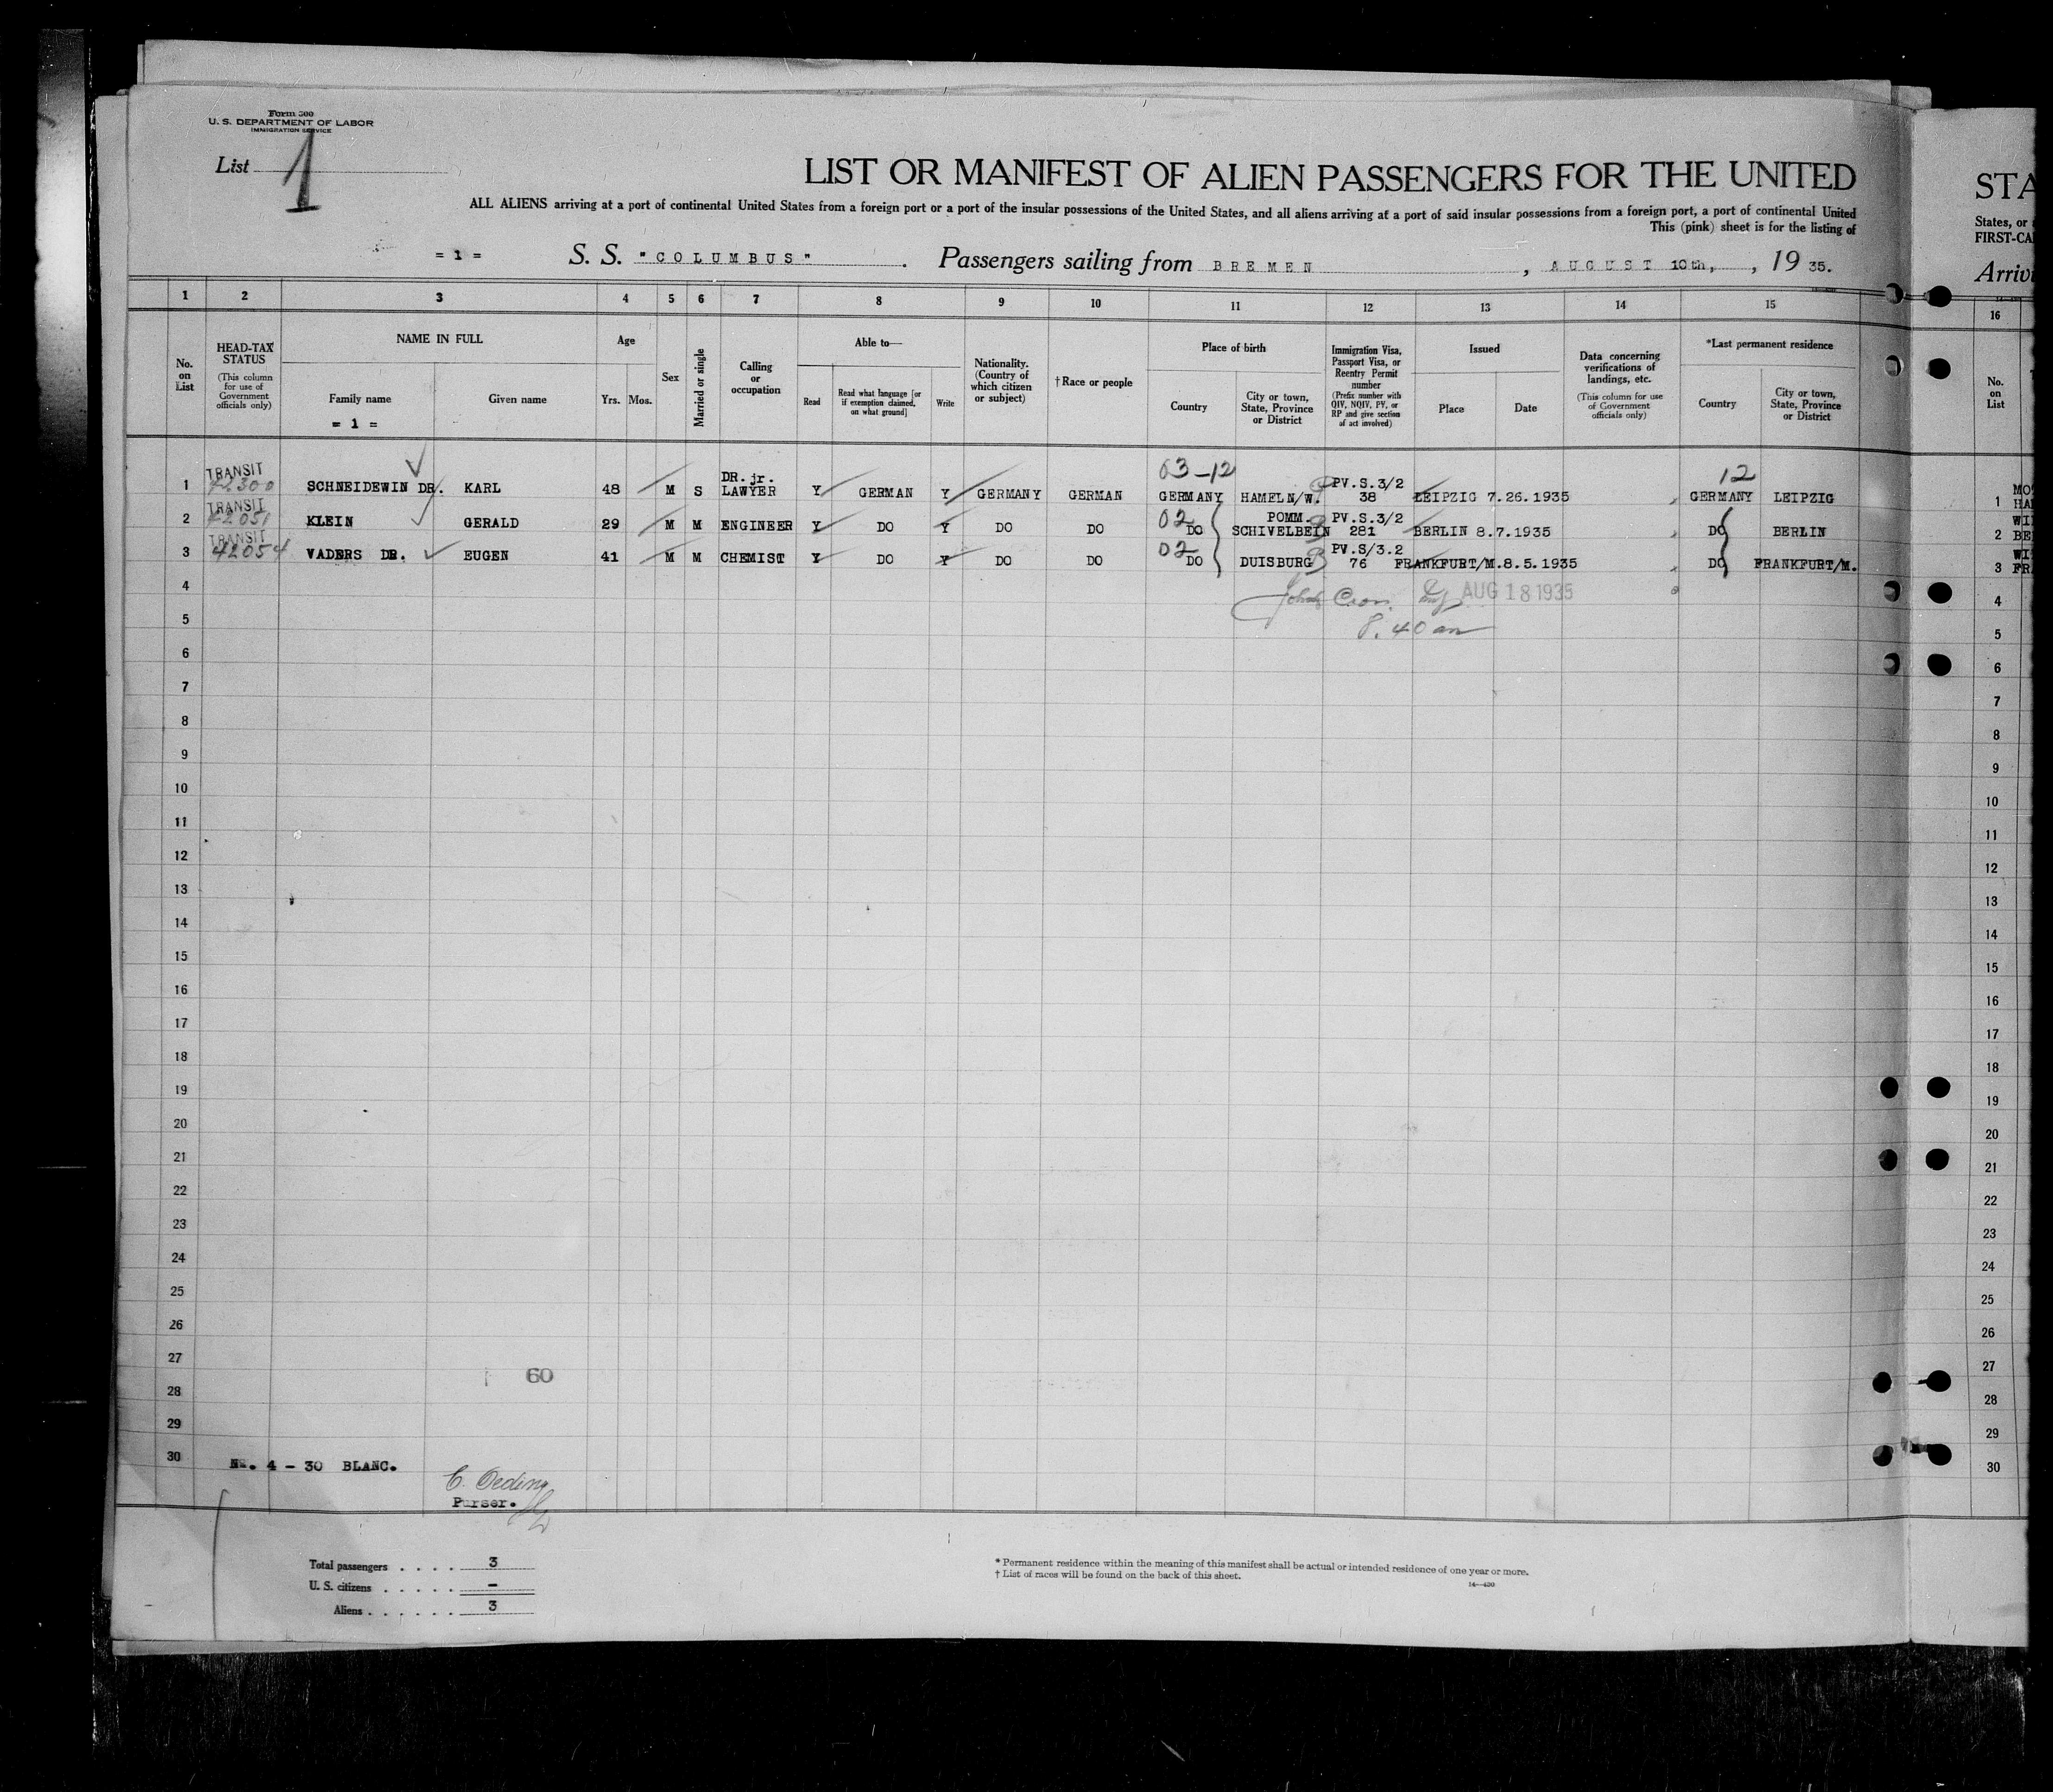 Form 500
U. S. DEPARTMENT OF LABOR
IMMIGRATION SERVICE
List 1
LIST OR MANIFEST OF ALIEN PASSENGERS FOR THE UNITED
ALL ALIENS arriving at a port of continental United States from a foreign port or a port of the insular possessions of the United States, and all aliens arriving at a port of said insular possessions from a foreign port, a port of continental United
This (pink) sheet is for the listing of
= 1 = S. S. "COLUMBUS" . Passengers sailing from BREMEN , AUGUST 10th, , 19 35.
STA
States, or
FIRST-CA
Arriv
1 2 3 4 5 6 7 8 9 10 11 12 13 14 15 16
No. on List
HEAD-TAX STATUS (This column for use of Government officials only)
NAME IN FULL
Family name
= 1 =
Given name
Age
Yrs. Mos.
Sex
Married or single
Calling or occupation
Able to—
Read
Read what language [or if exemption claimed, on what ground]
Write
Nationality. (Country of which citizen or subject)
†Race or people
Place of birth
Country
City or town, State, Province or District
Immigration Visa, Passport Visa, or Reentry Permit number (Prefix number with QIV, NQIV, PV, or RP and give section of act involved)
Issued
Place
Date
Data concerning verifications of landings, etc. (This column for use of Government officials only)
*Last permanent residence
Country
City or town, State, Province or District
No. on List
TRANSIT DR. jr. 03-12 PV.S.3/2 12
1 42300 SCHNEIDEWIN DR. KARL 48 M S LAWYER Y GERMAN Y GERMANY GERMAN GERMANY HAMELN/W. 38 LEIPZIG 7.26.1935 GERMANY LEIPZIG 1
TRANSIT 02 POMM. PV.S.3/2
2 42051 KLEIN GERALD 29 M M ENGINEER Y DO Y DO DO DO SCHIVELBEIN 281 BERLIN 8.7.1935 DO BERLIN 2
TRANSIT 02 PV.S/3.2
3 42054 VADERS DR. EUGEN 41 M M CHEMIST Y DO Y DO DO DO DUISBURG 76 FRANKFURT/M. 8.5.1935 DO FRANKFURT/M. 3
4 AUG 18 1935 4
5 8.40 am 5
6 6
7 7
8 8
9 9
10 10
11 11
12 12
13 13
14 14
15 15
16 16
17 17
18 18
19 19
20 20
21 21
22 22
23 23
24 24
25 25
26 26
27 60 27
28 28
29 29
30 NR. 4 - 30 BLANC. 30
C. Oeding
Purser.
Total passengers . . . . 3
U. S. citizens . . . . . –
Aliens . . . . . . 3
* Permanent residence within the meaning of this manifest shall be actual or intended residence of one year or more.
† List of races will be found on the back of this sheet.
14—430